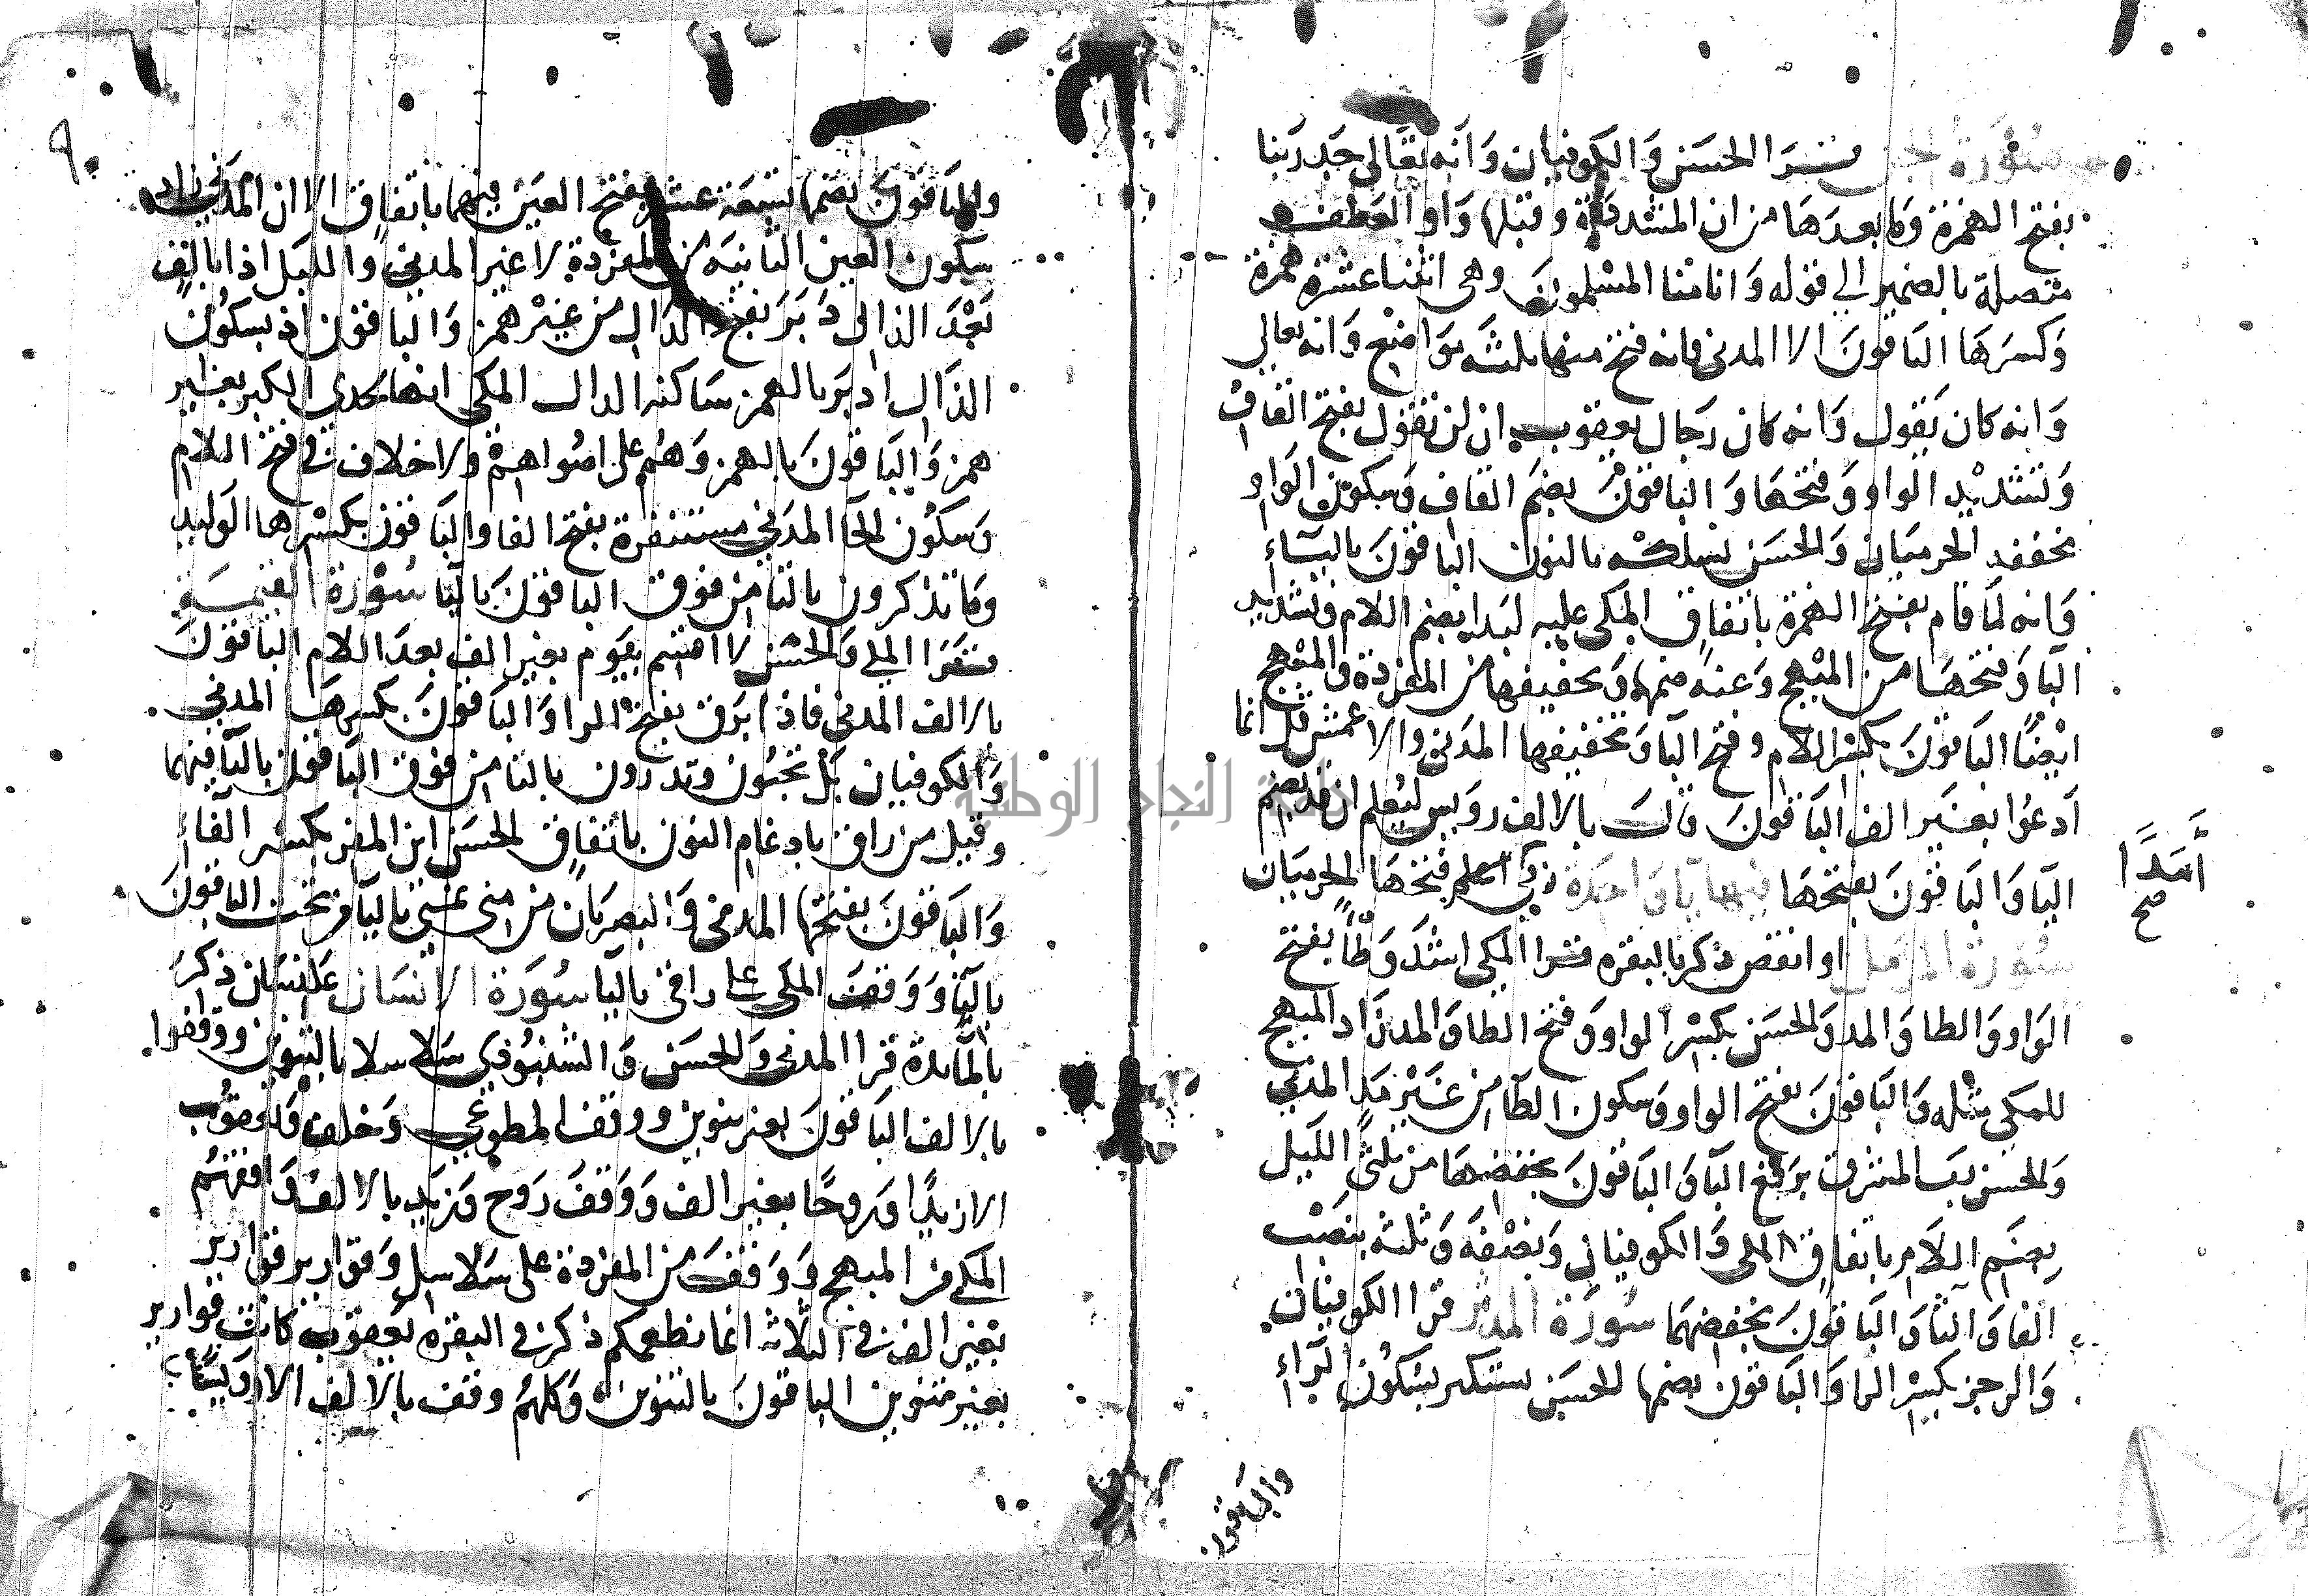 سورة الجن قرا الحسن والكوفيان وانه تعالى جد ربنا
بفتح الهمزة وما بعدها من ان المشددة وقبلها واو العطف
متصلة بالضمير الى قوله وانا منا المسلمون وهى اثنتا عشرة همزة
وكسرها الباقون الا المدنى فانه فتح منها ثلثه مواضع وانه تعالى
وانه كان يقول وانه كان رجال يعقوب ان لن تقول بفتح القاف
وتشديد الواو وفتحها والباقون بضم القاف وسكون الواو
مخففه الحرميان والحسن نسلكه بالنون الباقون بالياء
وانه لما قام بفتح الهمزة باتفاق المكى عليه لبدا بضم اللام وتشديد
البا وفتحها من المبهج وعنه ضمها وتخفيفها من المفردة والمبهج
ايضا الباقون بكسر اللام وفتح البا وتخفيفها المدنى والاعمش قل انما
ادعوا بغير الف الباقون قال بالالف رويس ليعلم ان قد بضم
اليا والباقون بفتحها فيها يا واحدة ربى امدا فتحها الحرميان
سورة المزمل او انقص ذكر بالبقره قرا المكى اشد وطأ بفتح
الواو والطا والمد والحسن بكسر الواو وفتح الطا والمد زاد المبهج
للمكى مثله والباقون بفتح الواو وسكون الطا من غير مد المدنى
والحسن رب المشرق برفع البا والباقون بخفضها من ثلثى الليل
بضم اللام باتفاق المكى والكوفيان ونصفه وثلثه بنصب
الفا والثا والباقون بخفضهما سورة المدثر قرا الكوفيان
والرجز بكسر الرا والباقون بضمها الحسن تستكثر بسكون الراء
والباقون
أمدًا
صح
والباقون بضمها تسعة عشر بفتح العين فيهما باتفاق الا ان المدنى زاد
سكون العين الثانيه من المفردة لا غير المدنى والليل اذا بالف
بعد الذال دبر بفتح الدال من غير همز والباقون اذ بسكون
الذال ادبر بالهمز ساكنه الدال المكى انها لاحدى الكبر بغير
همز والباقون بالهمز وهم على اصولهم ولا خلاف فى فتح اللام
وسكون الحا المدنى مستنفرة بفتح الفا والباقون بكسرها الوليد
وما تذكرون بالتا من فوق الباقون باليا سورة القيمة
قرا المكى والحسن لا اقسم بيوم بغير الف بعد اللام الباقون
بالالف المدنى فاذا برق بفتح الرا والباقون بكسرها المدنى
والكوفيان بل تحبون وتذرون بالتا من فوق الباقون باليا فيهما
وقيل من راق بادغام النون باتفاق الحسن اين المفر بكسر الفاء
والباقون بفتحها المدنى والبصريان من منى يمنى باليا من تحت الباقون
بالتا ووقف المكى على راقى باليا سورة الانسان على انسان ذكر
بالمائدة قرا المدنى والحسن والشنبوذى سلاسلا بالتنوين ووقفوا
بالالف الباقون بغير تنوين ووقف المطوعى وخلف ويعقوب
الا زيدا وروحا بغير الف ووقف روح وزيد بالالف وافقهم
المكى من المبهج ووقف من المفردة على سلاسل وقوارير قوارير
بغير الف فى الثلاثه انما نطعمكم ذكر فى البقره يعقوب كانت قوارير
بغير تنوين الباقون بالتنوين وكلهم وقف بالالف الا رويسا